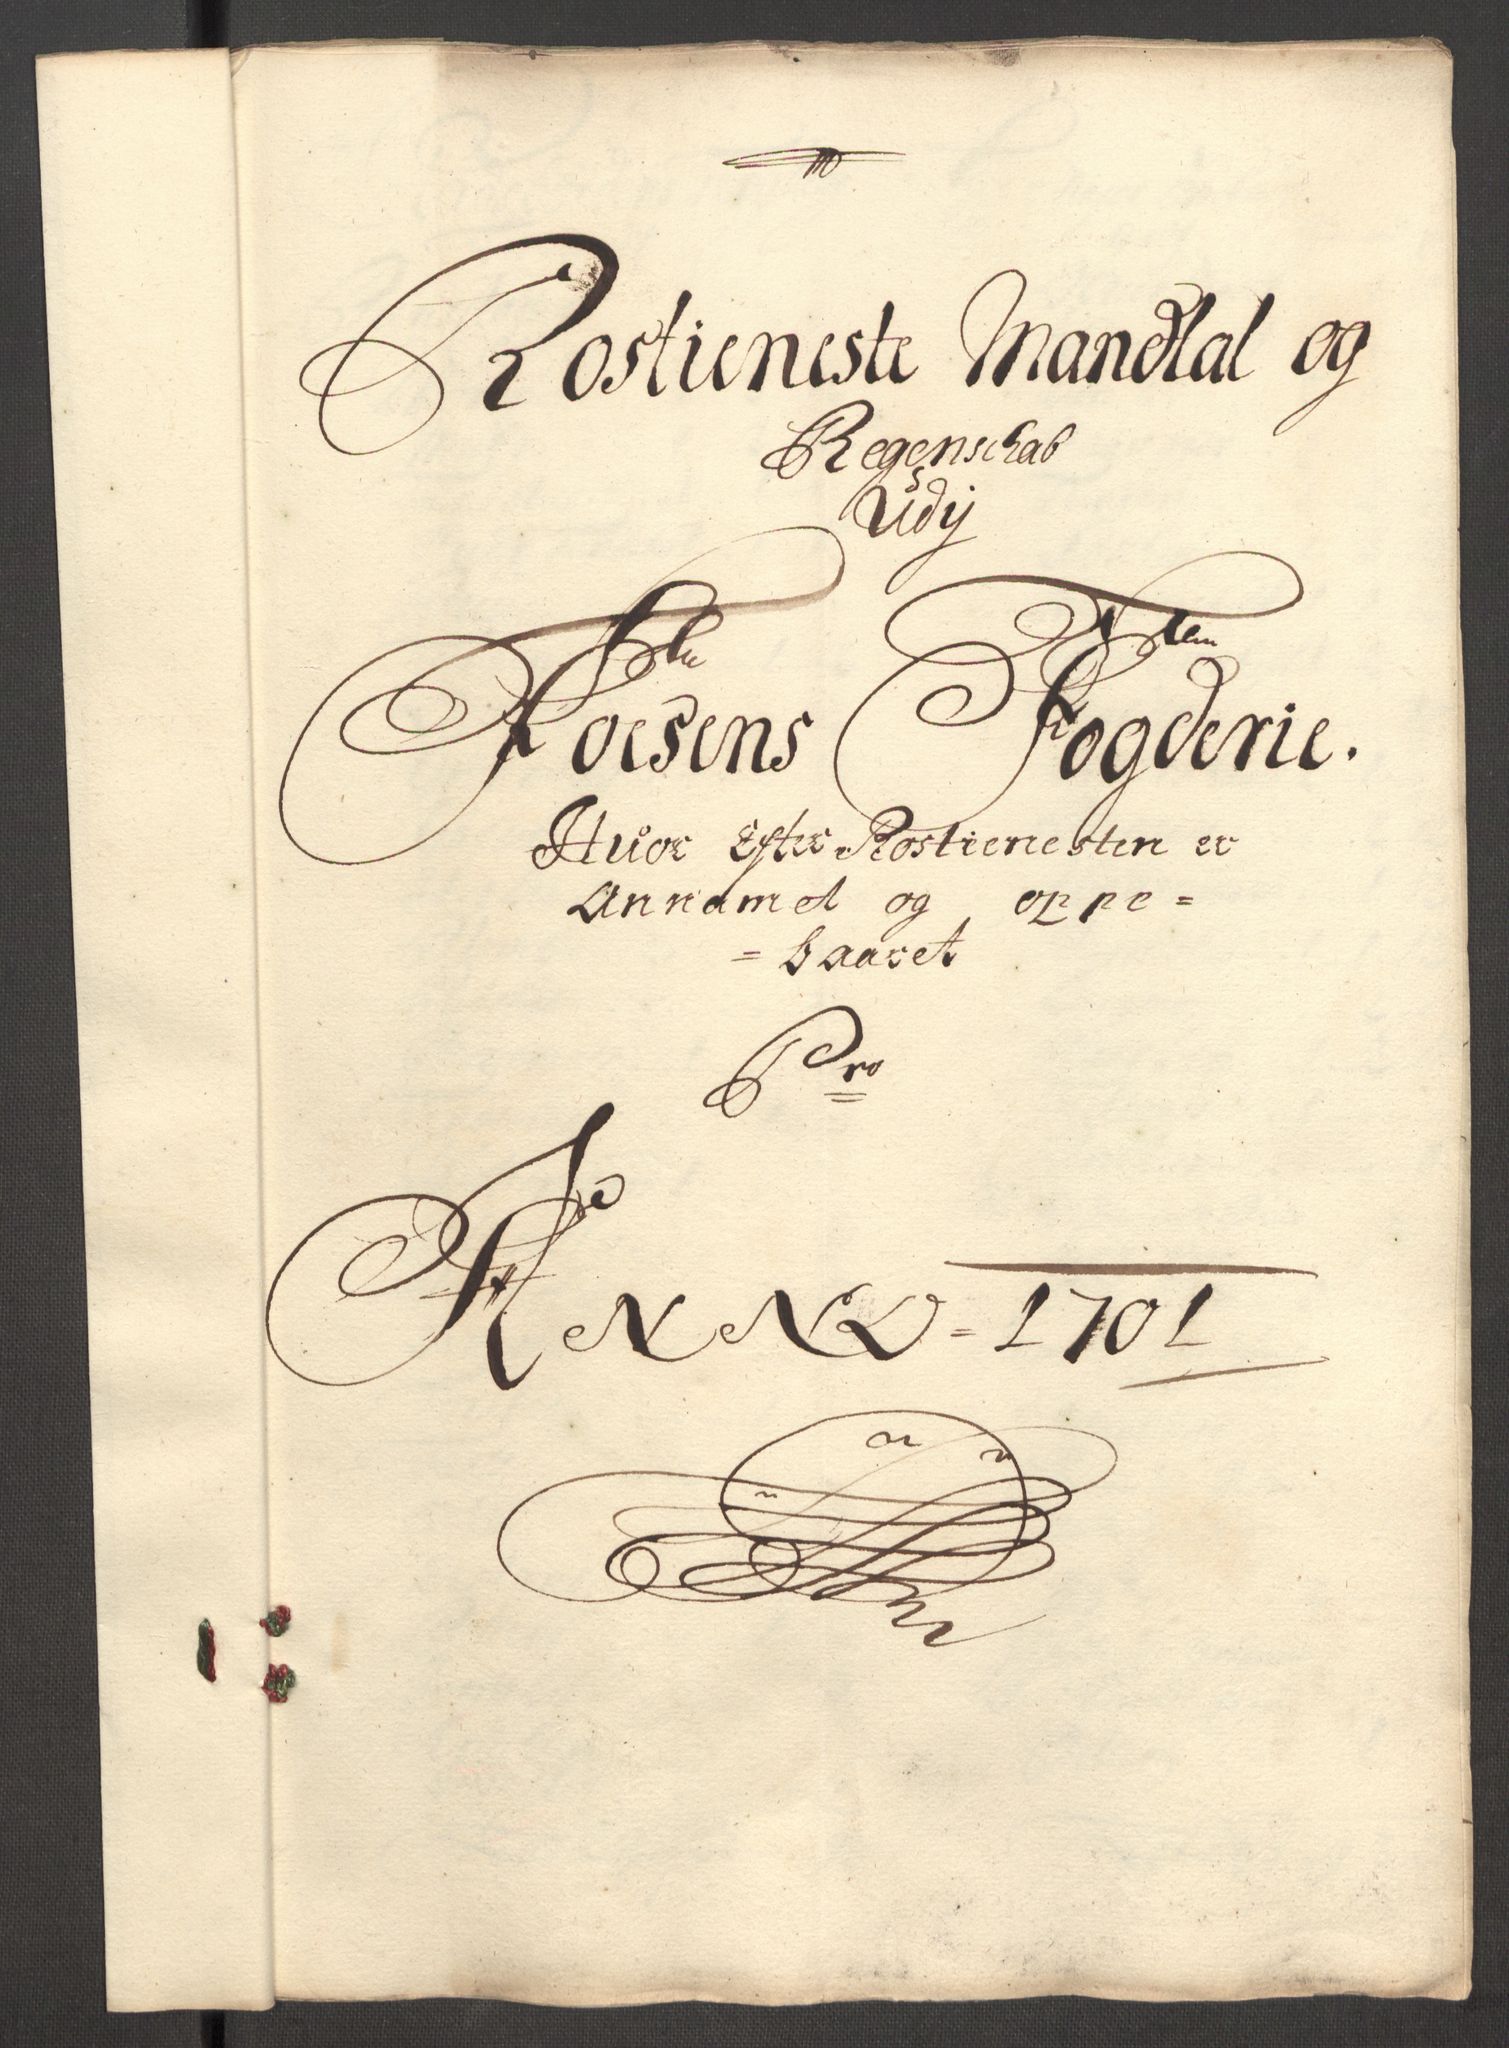 Rostieneste Mandtal og
Regenschab
Udij
Foesens Fogderie.
Huor Efter Rostienesten er
Annamet og oppe=
=baaret
Pro
ANNO = 1701